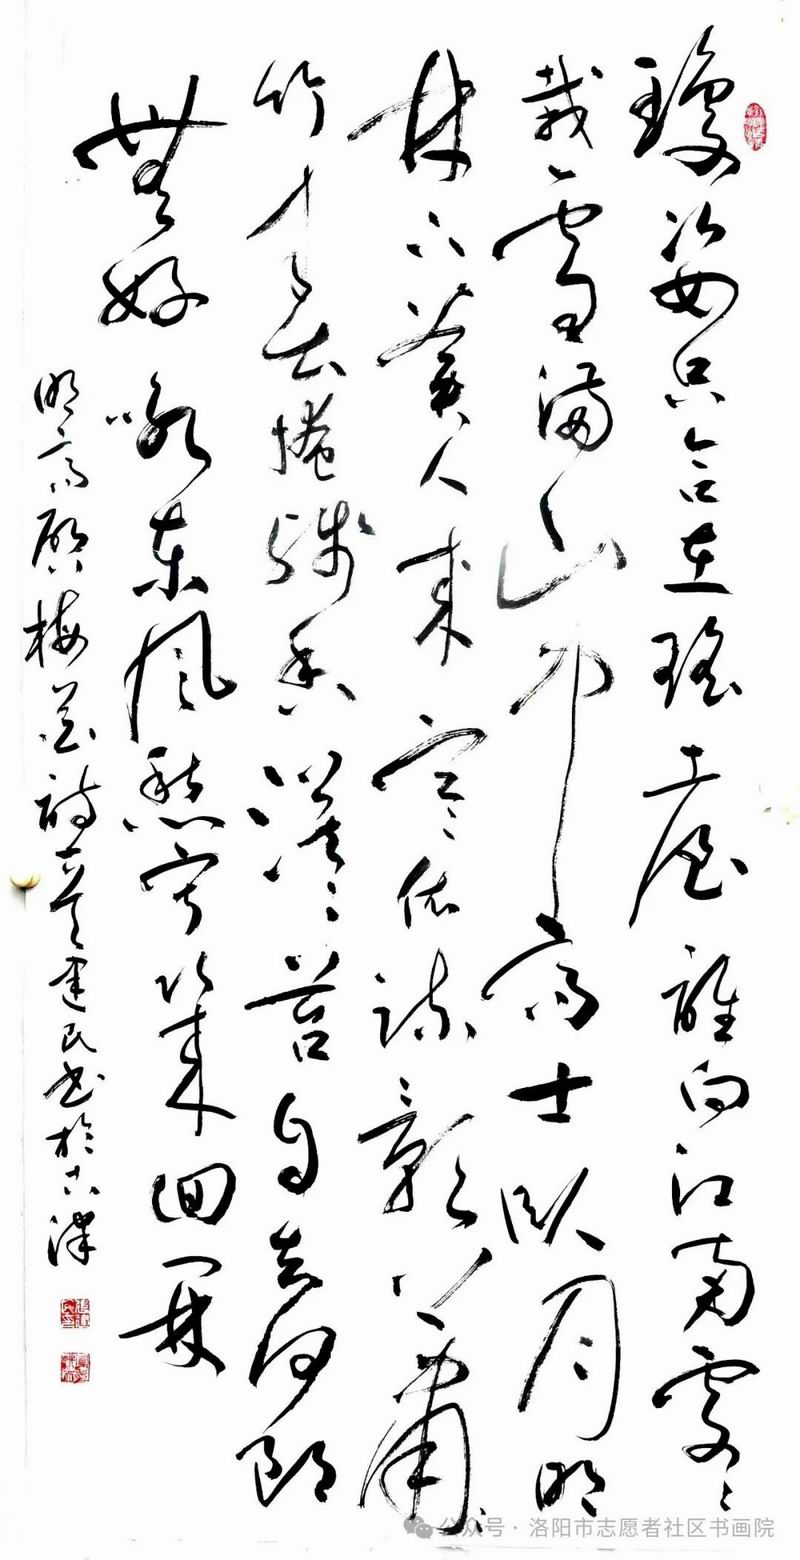 瓊姿只合在瑤臺誰向江南處々
栽雪滿山中高士臥月明
林下美人來寒依疏影蕭々
竹春掩殘香漠々苔自去何郎
無好詠東風愁寂幾回開
明高啟梅花詩建民書於
公众号 · 洛阳市志愿者社区书画院